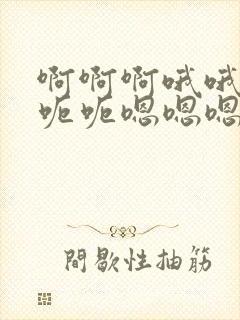 啊啊啊哦哦
呃呃嗯嗯嗯
間歇性抽筋